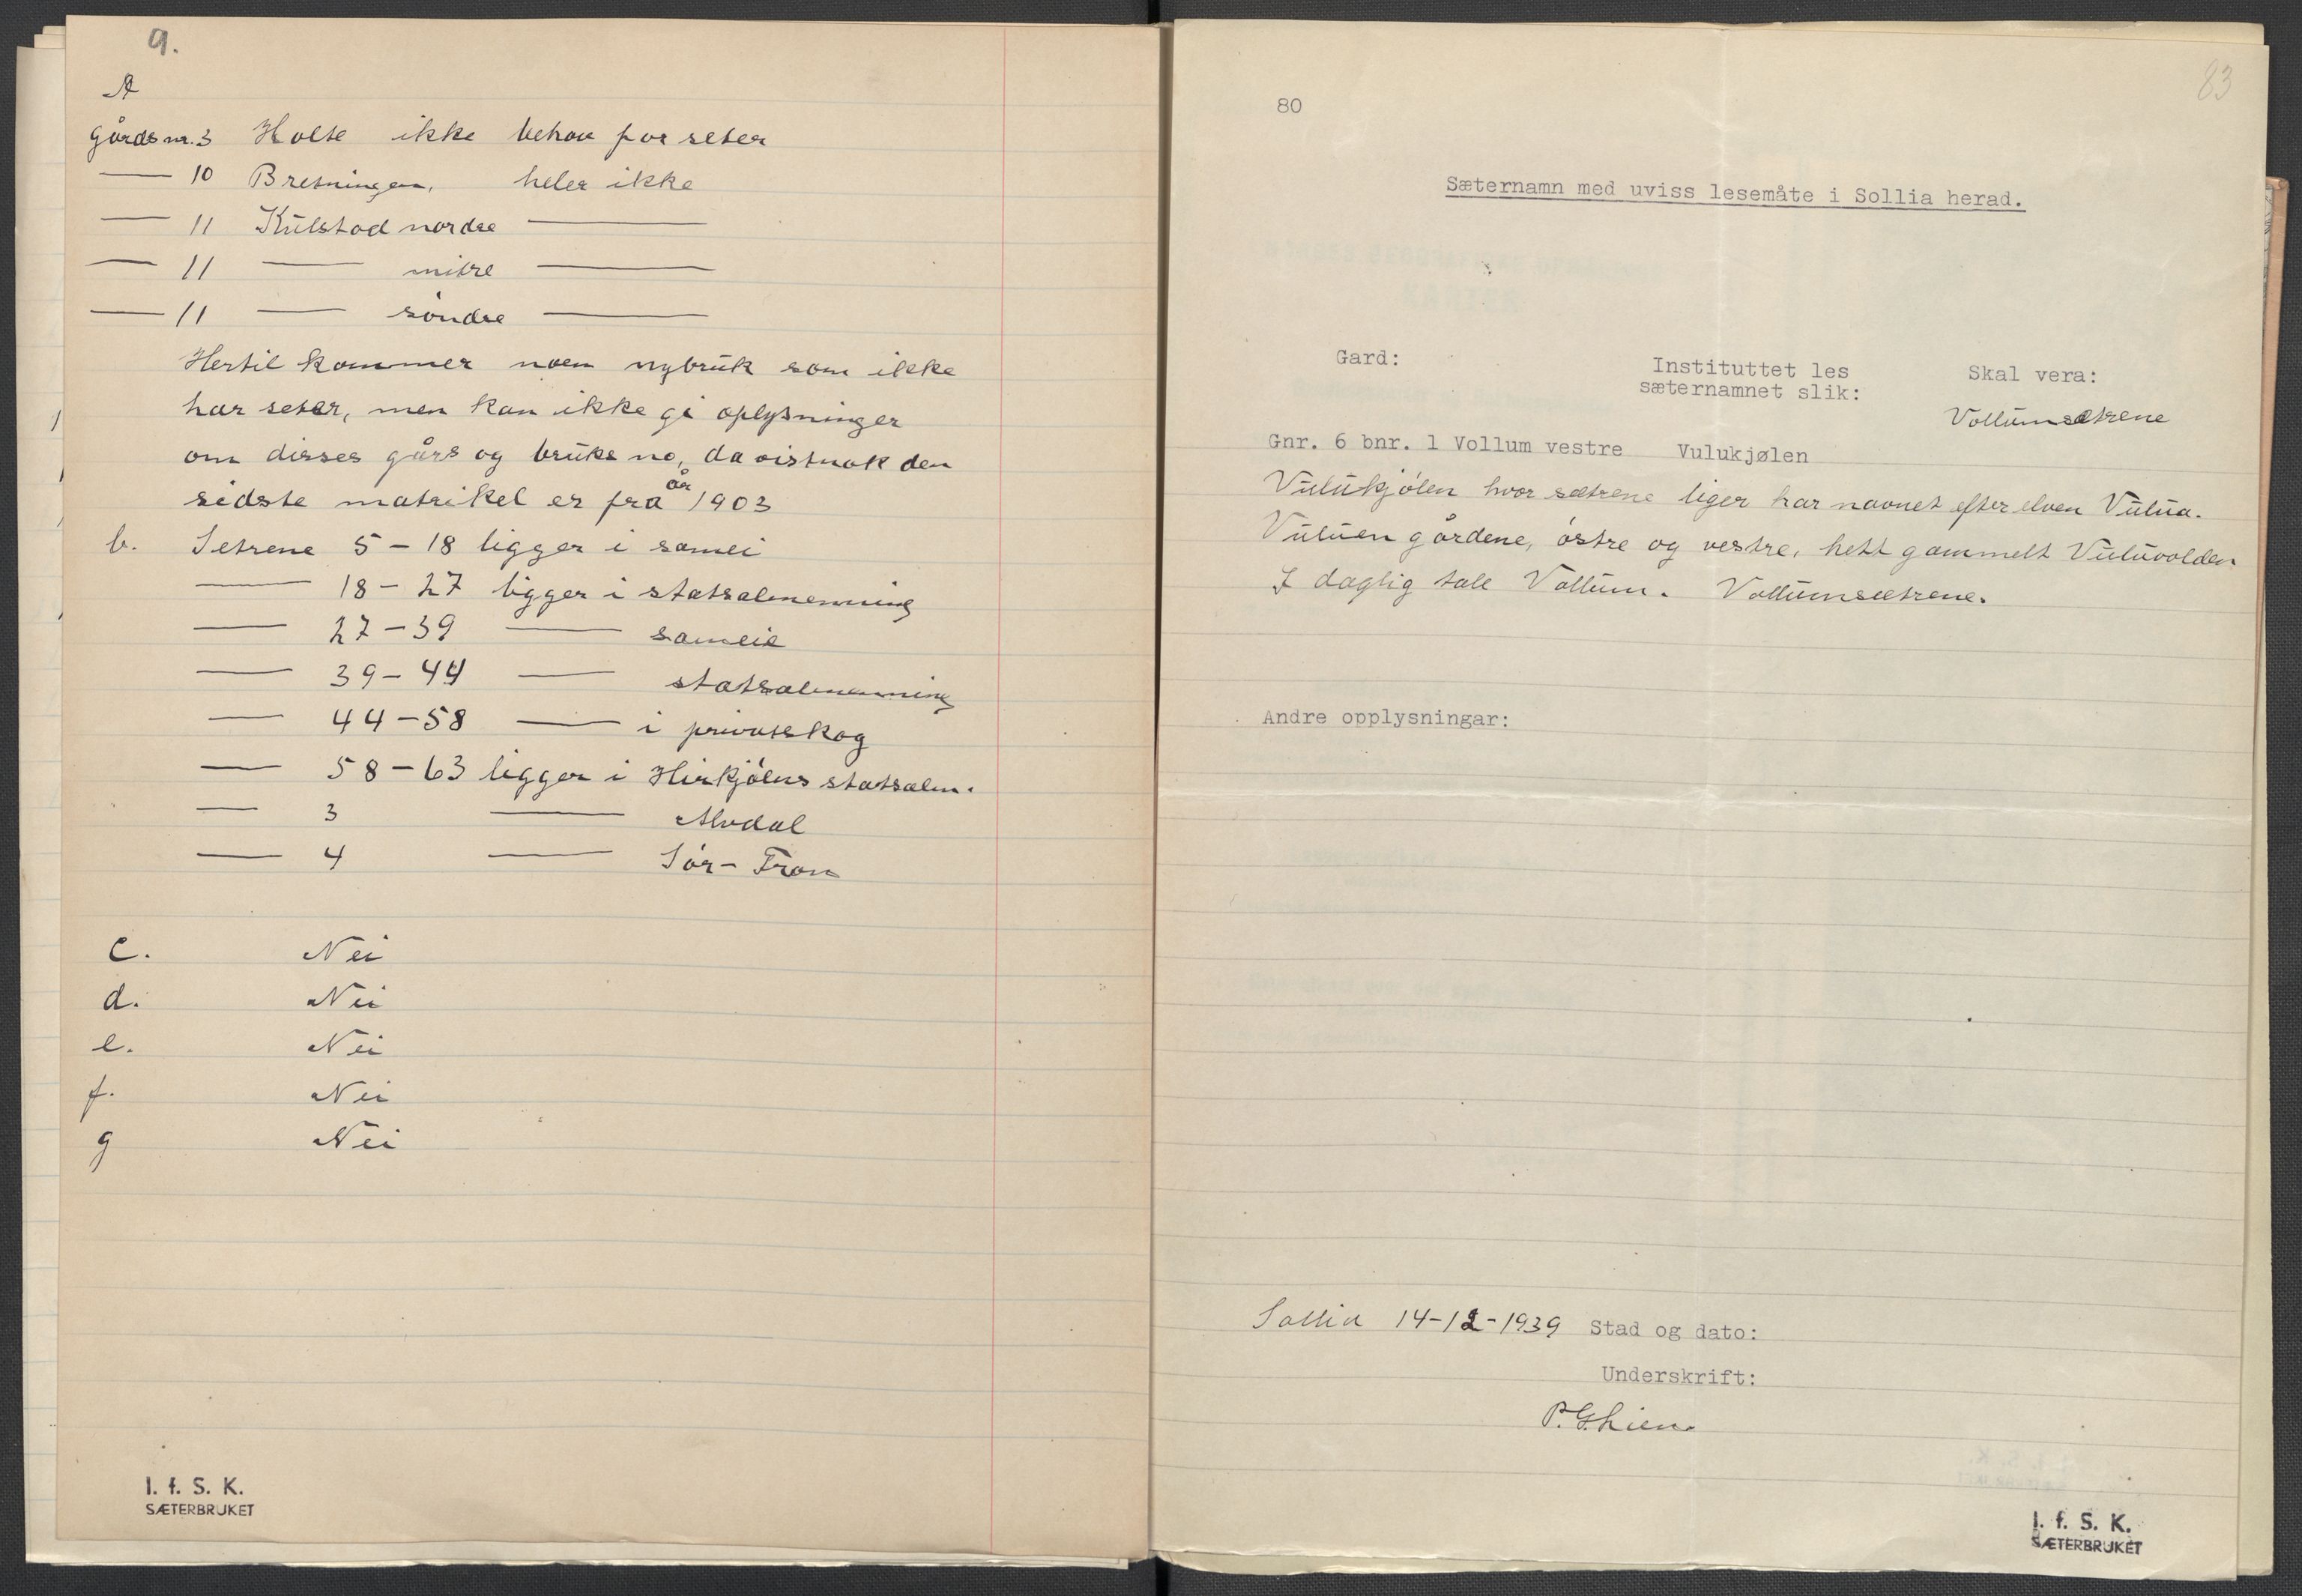 9.
A
Gårds nr. 3 Holte ikke behov for seter
— 10 Bretningen, heler ikke
— 11 Kulstad nordre —
— 11 — mitre —
— 11 — söndre —
Hertil kommer noen nybruk som ikke
har seter, men kan ikke gi oplysninger
om disses gårs og bruks no, da vistnok den
sidste matrikel er fra år 1903
b. Setrene 5 – 18 ligger i samei
— 18 – 27 ligger i statsalmenning
— 27 – 39 — sameie
— 39 – 44 — statsalmenning
— 44 – 58 — i privatskog
— 58 – 63 ligger i Hirkjölens statsalm.
— 3 — Alvdal
— 4 — Sör-Fron
c. Nei
d. Nei
e. Nei
f. Nei
g Nei
I. f. S. K.
SÆTERBRUKET
83
80
Sæternamn med uviss lesemåte i Sollia herad.
Gard: Instituttet les sæternamnet slik: Skal vera:
Vollumsetrene
Gnr. 6 bnr. 1 Vollum vestre Vulukjølen
Vulukjölen hvor sætrene liger har navnet efter elven Vulua.
Vuluen gårdene, östre og vestre, hett gammelt Vuluvolden
I daglig tale Vollum. Vollumsætrene.
Andre opplysningar:
Sollia 14-12-1939 Stad og dato:
Underskrift:
I. f. S. K.
SÆTERBRUKET